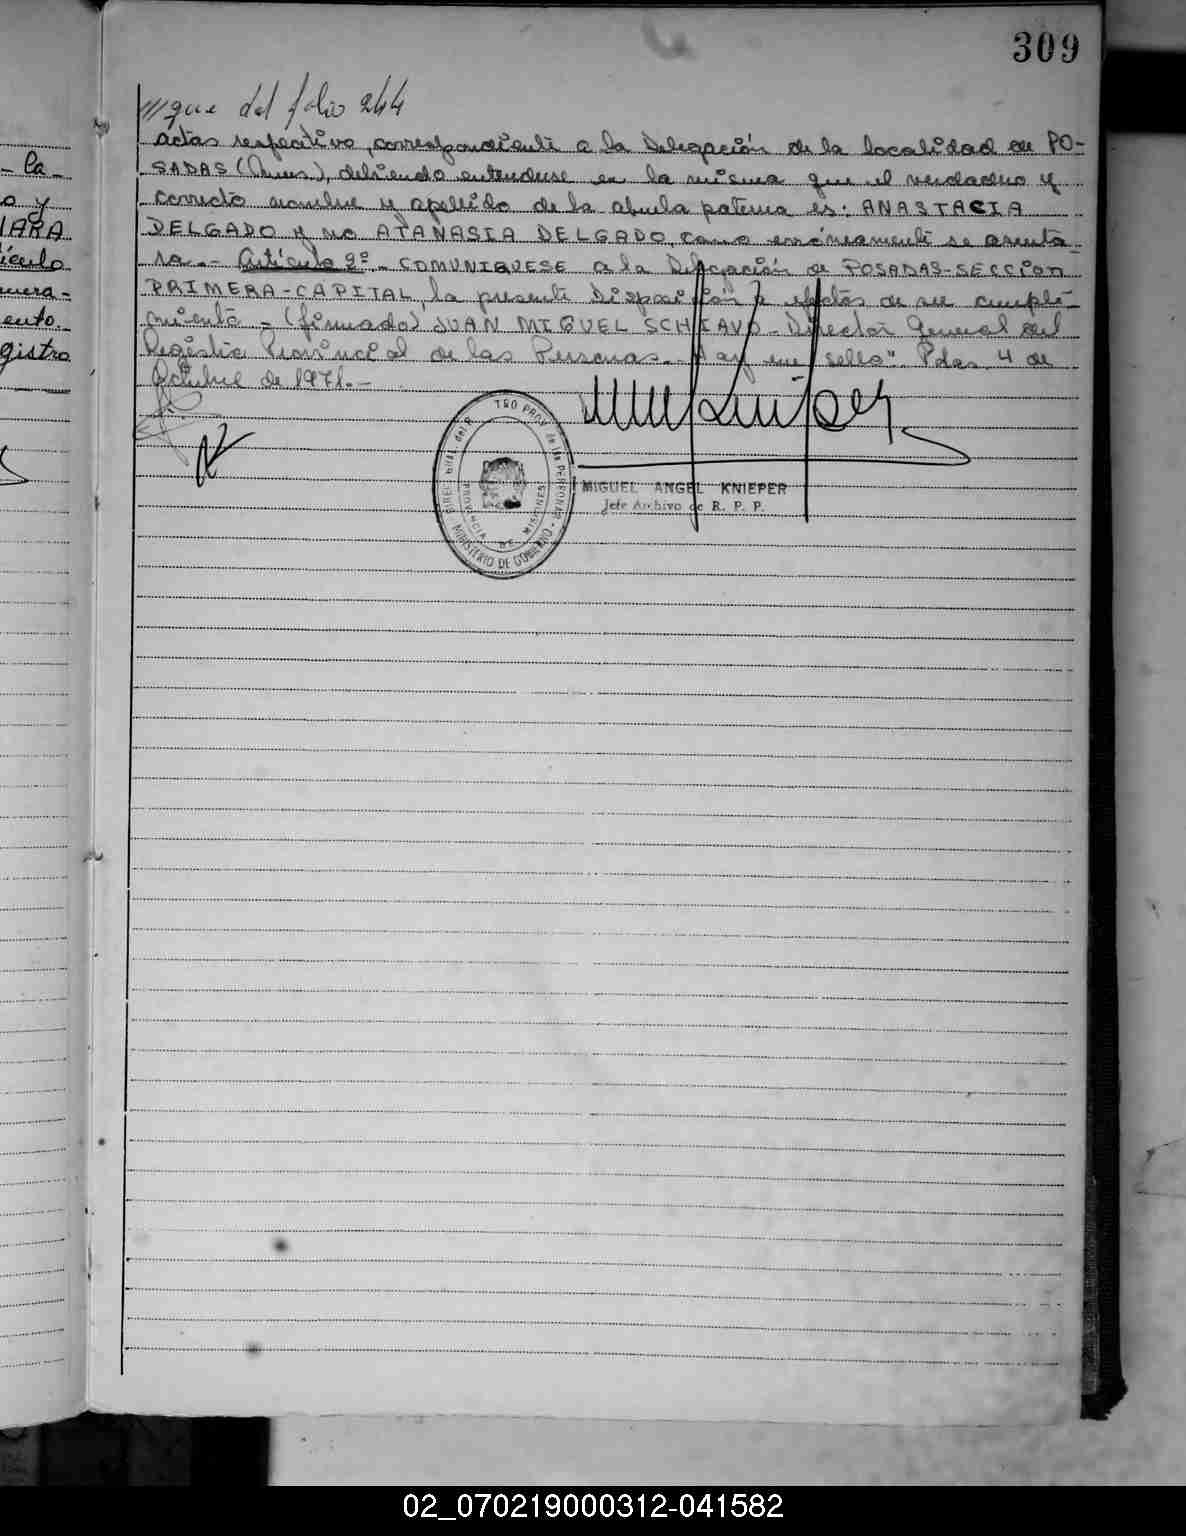 309
la
o y
IARA
ículo
mera-
ento.
gistro
///gue del folio 244
actas respectivo, correspondiente a la Delegación de la localidad de PO-
SADAS (Mnes.), debiendo entenderse en la misma que el verdadero y
correcto nombre y apellido de la abuela paterna es: ANASTACIA
DELGADO y no ATANASIA DELGADO, como erróneamente se asenta
ra.- Artículo 2º.- COMUNIQUESE a la Delegación de POSADAS-SECCION
PRIMERA-CAPITAL, la presente Disposición a efectos de su cumpli-
miento - (firmado) JUAN MIGUEL SCHIAVO - Director General del
Registro Provincial de las Personas.- Hay un sello". Pdas. 4 de
Octubre de 1971.-
TRO PROV. de las PERSONAS
MINISTERIO DE GOBIERNO
PROVINCIA DE MISIONES
MIGUEL ANGEL KNIEPER
Jefe Archivo de R. P. P.
02_070219000312-041582